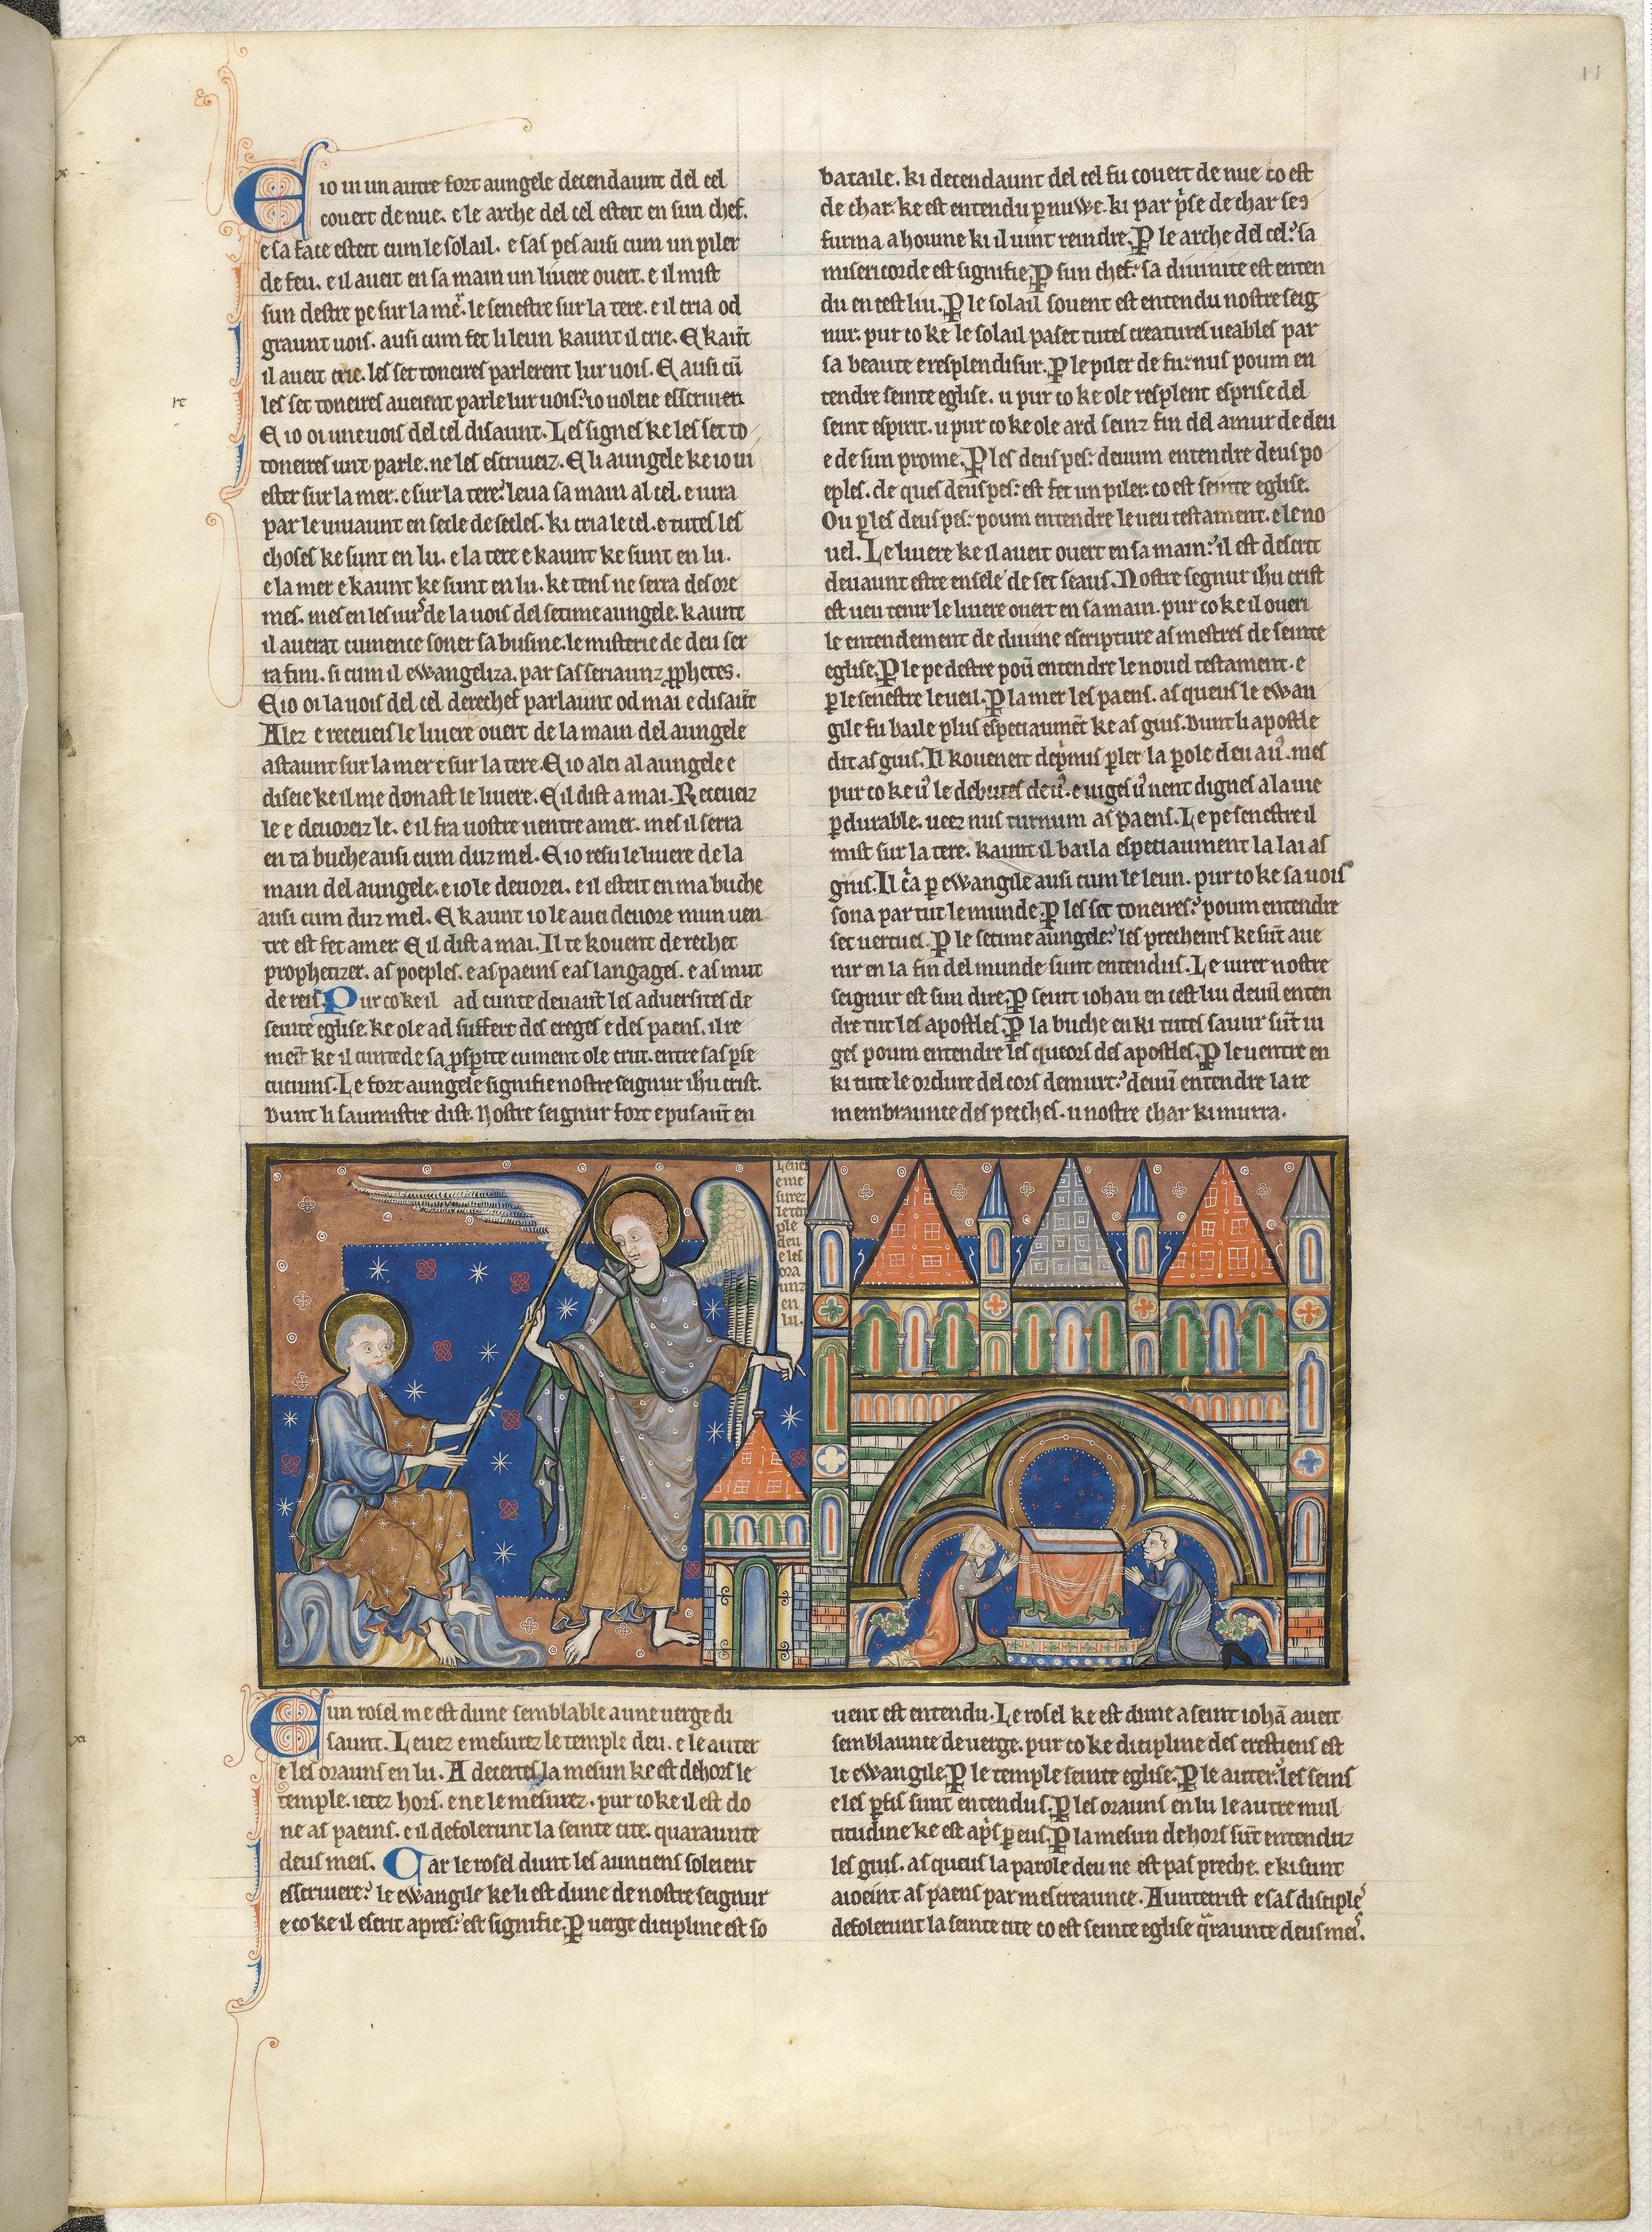 11
E io ui un autre fort aungele decendaunt del cel
couert de nue. e le arche del cel esteit en sun chef.
e sa face esteit cum le solail. e sas pes ausi cum un piler
de feu. e il aueit en sa main un liuere ouert. e il mist
sun destre pe sur la mer. le senestre sur la tere. e il cria od
graunt uois. ausi cum fet li leun kaunt il crie. E kaunt
il aueit crie. les set toneires parlerent lur uois. E ausi cū
les set toneires aueient parle lur uois? io uoleie esscriuer.
E io oi une uois del cel disaunt. Les signes ke les set to
toneires unt parle. ne les escriueiz. E li aungele ke io ui
ester sur la mer. e sur la tere? leua sa main al cel. e iura
par le uiuaunt en secle de secles. ki cria le cel. e tutes les
choses ke sunt en lu. e la tere e kaunt ke sunt en lu.
e la mer e kaunt ke sunt en lu. ke tens ne serra desore
mes. mes en les iurs de la uois del setime aungele. kaunt
il auerat cumence soner sa busine. le misterie de deu ser
ra fini. si cum il ewangeliza. par sas seriaunz prophetes.
E io oi la uois del cel derechef parlaunt od mai e disaūt
Alez e receueis le liuere ouert de la main del aungele
astaunt sur la mer e sur la tere. E io alei al aungele e
diseie ke il me donast le liuere. E il dist a mai. Receueiz
le e deuoreiz le. e il fra uostre uentre amer. mes il serra
en ta buche ausi cum duz mel. E io resu le liuere de la
main del aungele. e io le deuorei. e il esteit en ma buche
ausi cum duz mel. E kaunt io le auei deuore mun uen
tre est fet amer. E il dist a mai. Il te kouent derechef
prophetizer. as poeples. e as paeins e as langages. e as mut
de reis. Pur co ke il ad cunte deuaūt les aduersites de
seinte eglise. ke ole ad suffert des ereges e des paens. il re
meit ke il cunte de sa ꝓsꝑite cument ole crut. entre sas ꝑse
cuciuns. Le fort aungele signifie nostre seignur ihu crist.
Dunt li saumistre dist. Nostre seignur fort e pusaūt en
bataile. ki decendaunt del cel fu couert de nue co est
de char. ke est entendu ꝑ nuwe. ki par pͥse de char ses
furma a houme ki il uint reindre. ꝑ le arche del cel? sa
misericorde est signifie. ꝑ sun chef? sa diuinite est enten
du en cest liu. ꝑ le solail souent est entendu nostre seig
nur. pur co ke le solail paset tutes creatures ueables par
sa beaute e resplendisur. ꝑ le piler de fu? nus poum en
tendre seinte eglise. u pur co ke ole resplent esprise del
seint espirit. u pur co ke ole ard seinz fin del amur de deu
e de sun prome. ꝑ les deus pes? deuum entendre deus po
eples. de ques deus pes? est fet un piler. co est seinte eglise.
Ou ꝑ les deus pes? poum entendre le ueu testament. e le no
uel. Le liuere ke il aueit ouert en sa main? il est descrit
deuaunt estre ensele de set seaus. Nostre segnur ihu crist
est ueu tenir le liuere ouert en sa main. pur co ke il oueri
le entendement de diuine escripture as mestres de seinte
eglise. ꝑ le pe destre poū entendre le nouel testament. e
ꝑ le senestre le ueil. ꝑ la mer les paens. as queus le ewan
gile fu baile plus especiaumēt ke as gius. Dunt li apostle
dit as gius. Il koueneit depͥmus ꝑler la ꝑole deu a uꝰ. mes
pur co ke uꝰ le debutes de uꝰ. e uiges uꝰ nent dignes a la uie
ꝑdurable. ueez nus turnum as paens. Le pe senestre il
mist sur la tere. kaunt il baila especiaument la lai as
gius. Il cͥa ꝑ ewangile ausi cum le leun. pur co ke sa uois
sona par tut le munde. ꝑ les set toneires? poum entendre
set uertues. ꝑ le setime aungele? les precheurs ke sūt aue
nir en la fin del munde sunt entendus. Le iurer nostre
seignur est sun dire. ꝑ seint iohan en cest liu deuū enten
dre tut les apostles. ꝑ la buche en ki tutes sauur sūt iu
ges poum entendre les queors des apostles. ꝑ le uentre en
ki tute le ordure del cors demurt? deuū entendre la re
membraunce des pecches. u nostre char ki murra.
Leuez
e me
surez
le tem
ple
deu
e les
ora
unz
en
lu.
E un rosel me est dune semblable a une uerge di
saunt. Leuez e mesurez le temple deu. e le auter
e les orauns en lu. A decertes la mesun ke est dehors le
temple. ietez hors. e ne le mesurez. pur co ke il est do
ne as paeins. e il defolerunt la seinte cite. quaraunte
deus meis. Car le rosel dunt les aunciens soleient
esscriuere? le ewangile ke li est dune de nostre seignur
e co ke il escrit apres? est signifie. ꝑ uerge dicipline est so
uent est entendu. Le rosel ke est dune a seint iohā aueit
semblaunce de uerge. pur co ke dicipline des crestiens est
le ewangile. ꝑ le temple seinte eglise. ꝑ le auter? les seins
e les ꝑfis sunt entendus. ꝑ les orauns en lu le autre mul
titudine ke est apͥs ꝑ eus. ꝑ la mesun dehors sūt entenduz
les gius. as queus la parole deu ne est pas preche. e ki sunt
aioeint as paens par mescreaunce. Auntecrist e sas disciples
defolerunt la seinte cite co est seinte eglise qͣraunte deus meis.